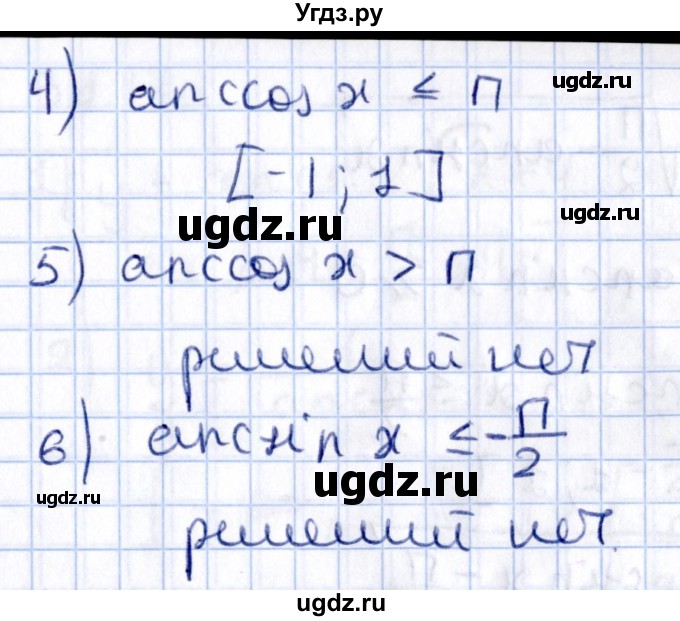 Угдз.ру
4) arccos x ≤ П
ugdz.ru
[-1; 1]
ugdz.ru
5) arccos x > П
ugdz.ru
решений нет
6) arcsin x ≤ -П/2
ugdz.ru
ugdz.ru
решений нет.
ugdz.ru
ugdz.ru